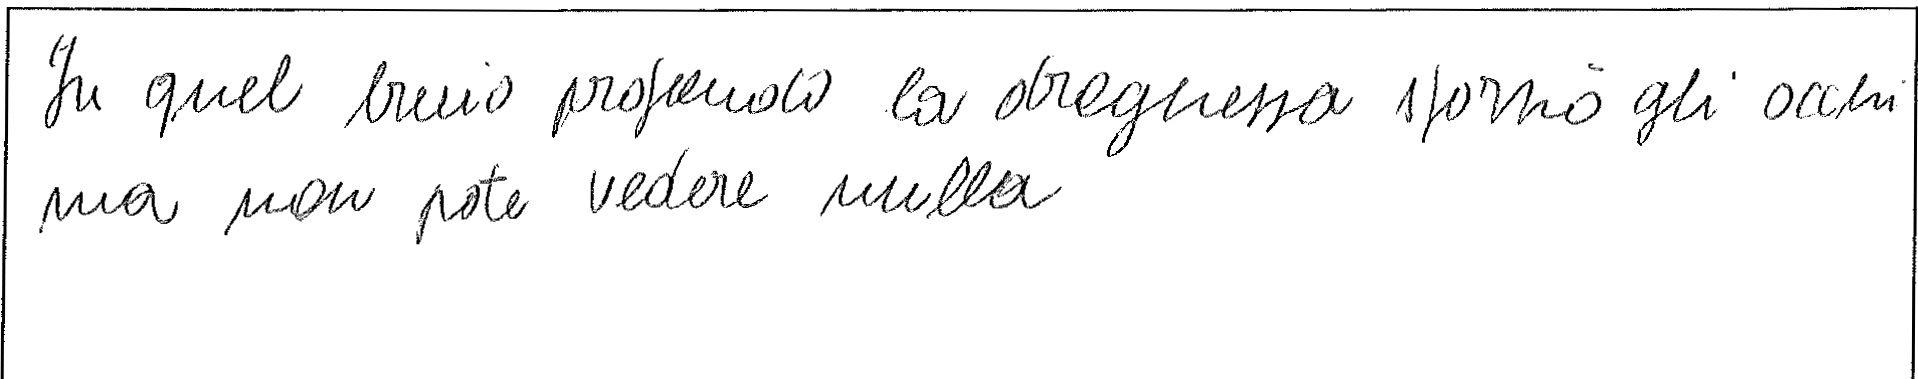 In quel buio profondo la dragnessa sforzò gli occhi
ma non pote vedere nulla